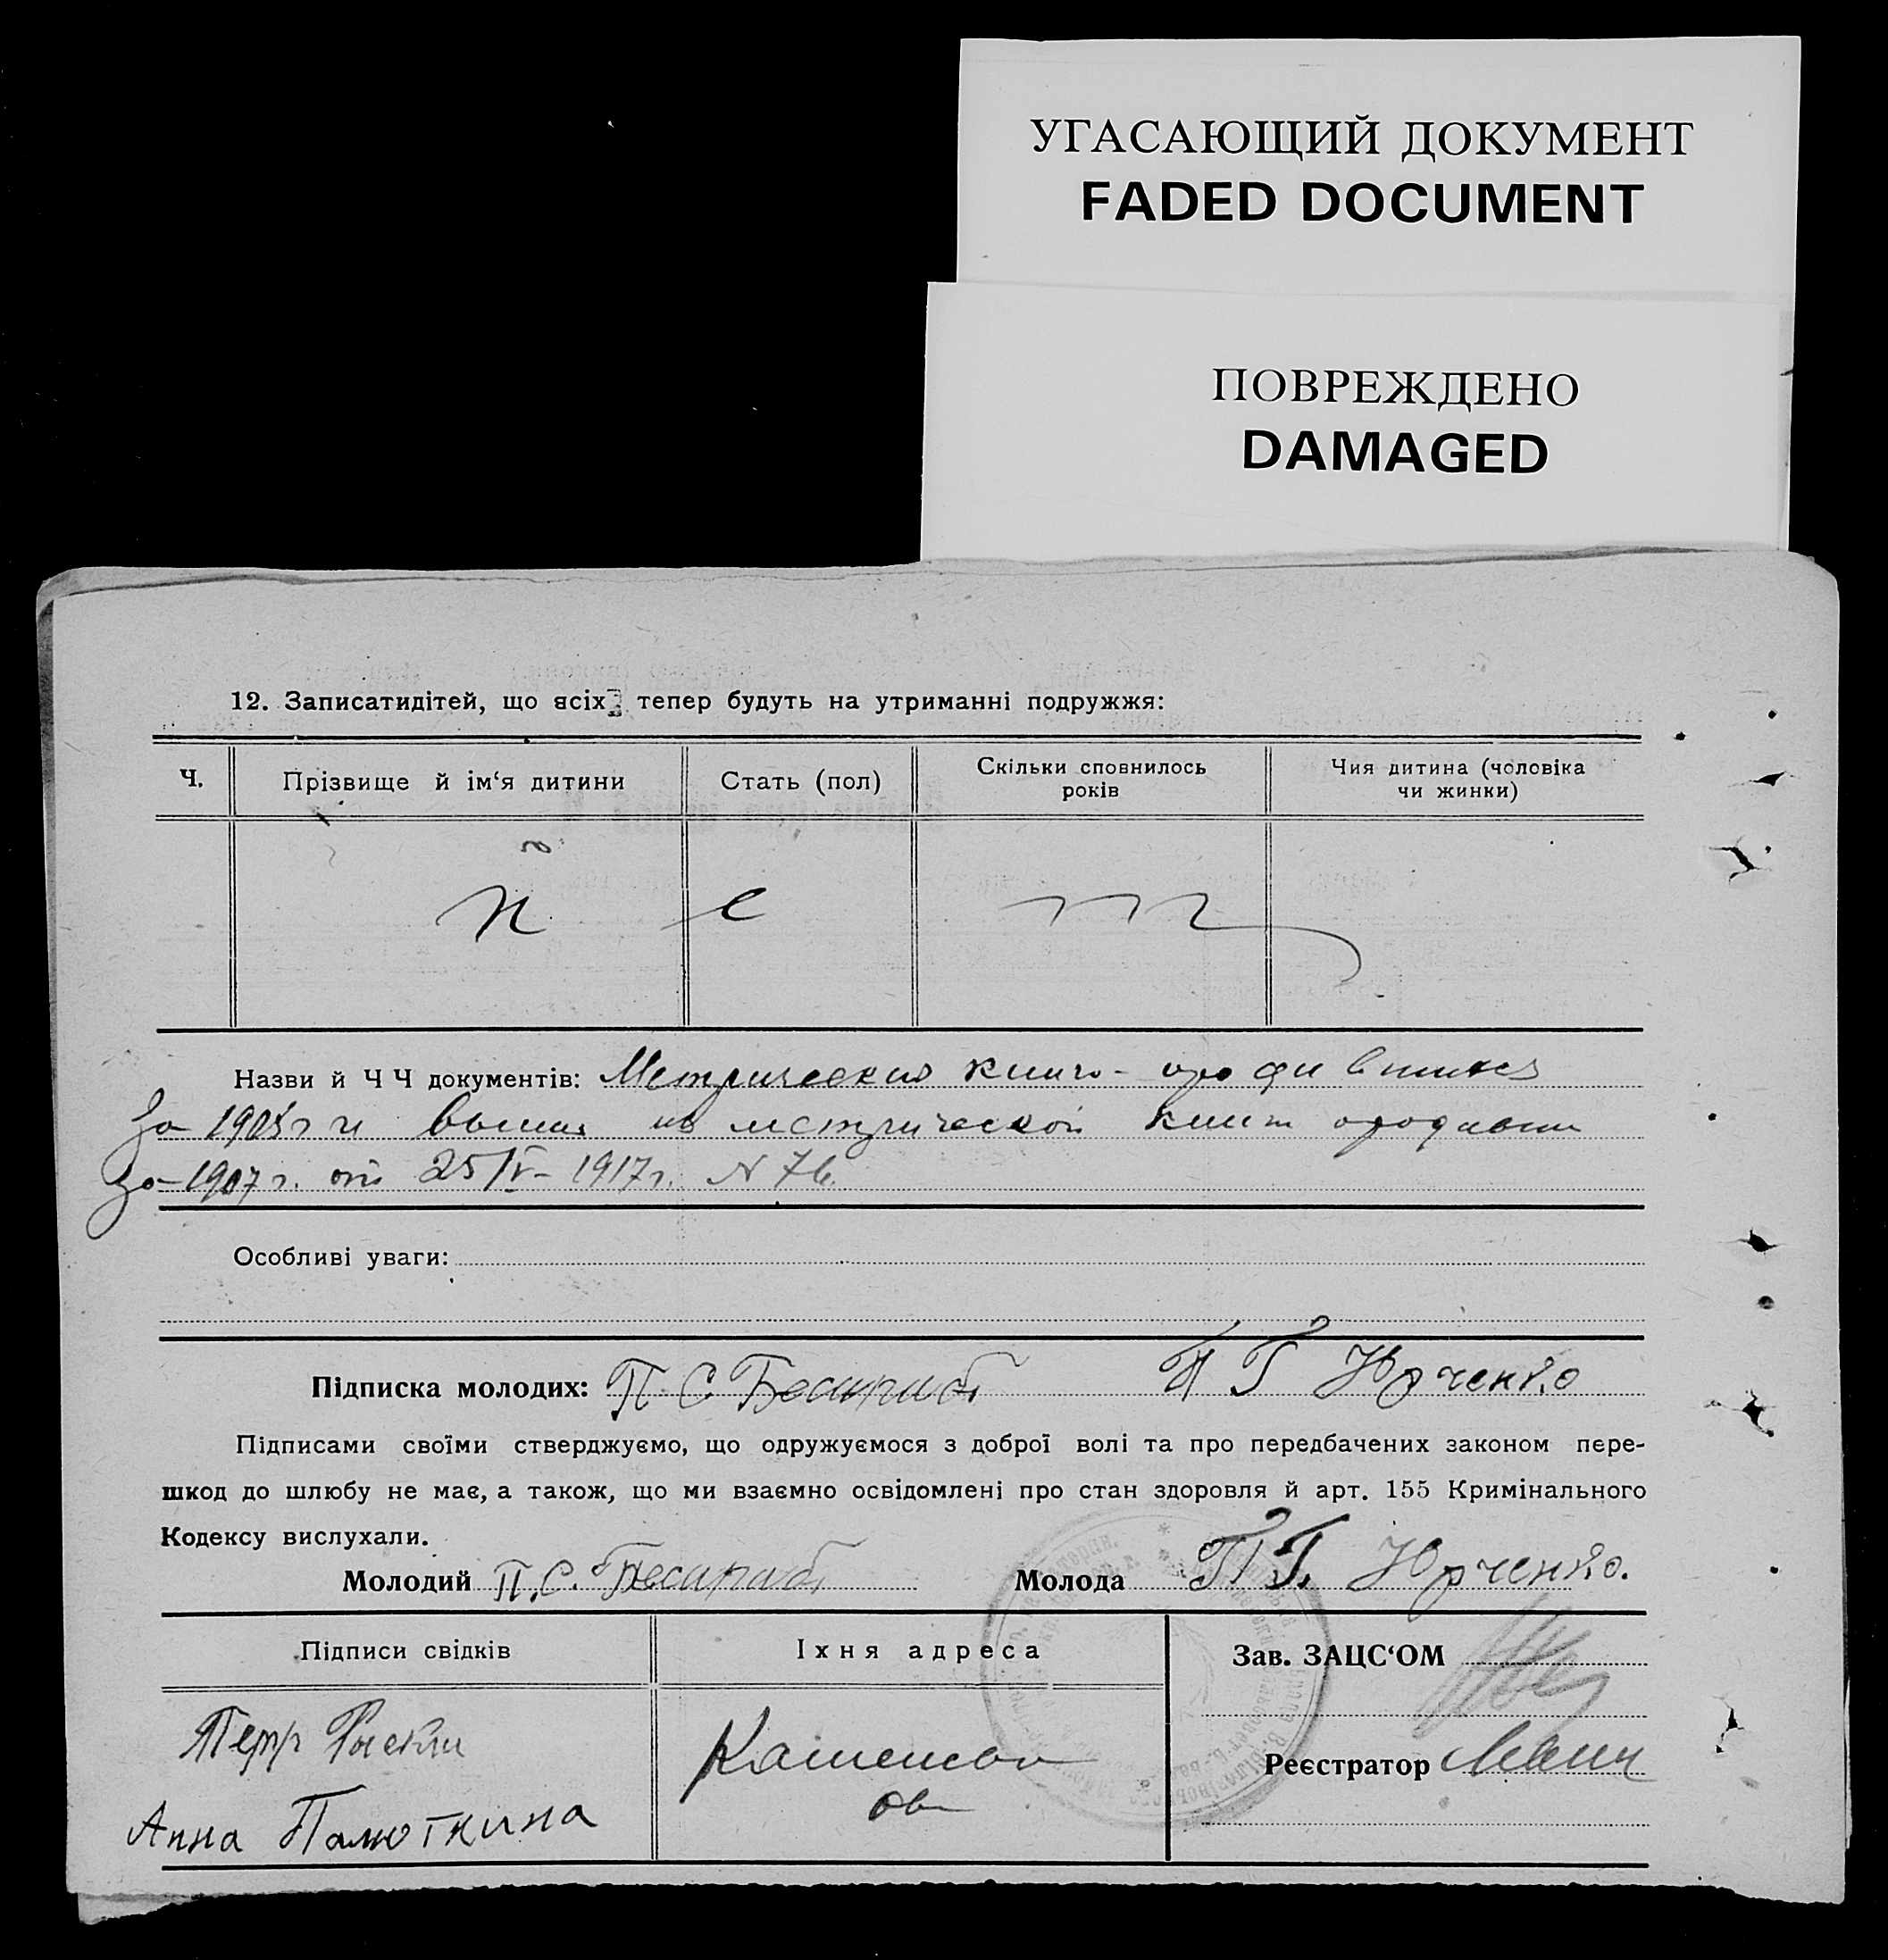 УГАСАЮЩИЙ ДОКУМЕНТ
FADED DOCUMENT
ПОВРЕЖДЕНО
DAMAGED
12. Записатидітей, що всіх тепер будуть на утриманні подружжя:
Ч. Прізвище й ім‘я дитини Стать (пол) Скільки сповнилось років Чия дитина (чоловіка чи жинки)
нет
Назви й Ч Ч документів: Метрическая
за 1905 г и метрической
за 1907 г. от 25/V-1917 г. N 76
Особливі уваги:
Підписка молодих: П. С. Бесараб П Г Юрченко
Підписами своїми стверджуємо, що одружуємося з доброї волі та про передбачених законом пере-
шкод до шлюбу не має, а також, що ми взаємно освідомлені про стан здоровля й арт. 155 Кримінального
Кодексу вислухали.
Молодий П. С. Бесараб Молода П Г. Юрченко.
Підписи свідків Іхня адреса Зав. ЗАЦС‘ОМ
Реєстратор
Анна